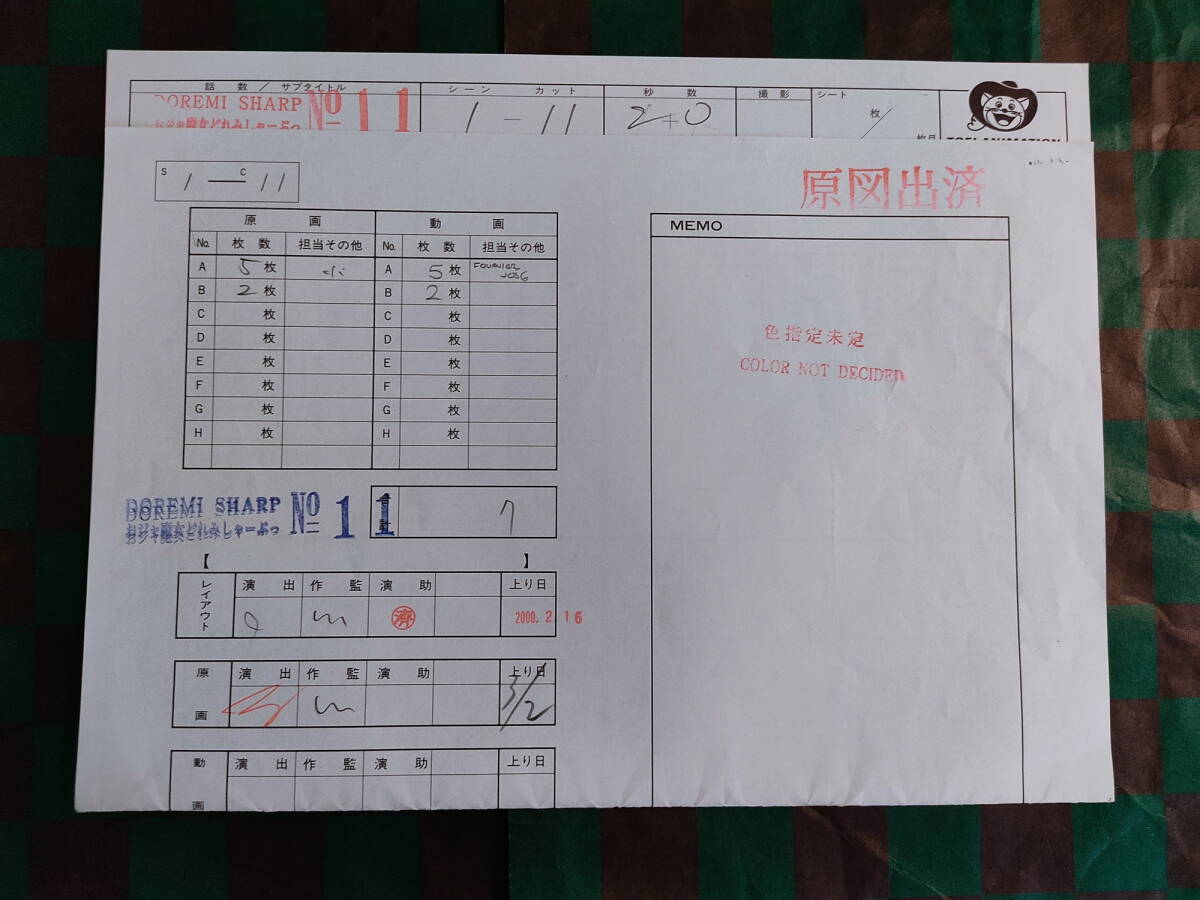 話 数 / サブタイトル シーン カット 秒 数 撮 影 シート
DOREMI SHARP No 11 1 - 11 2+0 枚/
おジャ魔女どれみしゃーぷっ 枚目
TOEI ANIMATION
S 1 — C 11
原図出済
原 画 動 画
MEMO
No. 枚 数 担当その他 No. 枚 数 担当その他
A 5 枚 A 5 枚 FOURNIER
B 2 枚 B 2 枚
C 枚 C 枚
D 枚 D 枚
E 枚 E 枚
F 枚 F 枚
G 枚 G 枚
H 枚 H 枚
色指定未定
COLOR NOT DECIDED
DOREMI SHARP No 11
おジャ魔女どれみしゃーぷっ
合計 7
【 】
レイアウト 演 出 作 監 演 助 上り日
済 2000. 2. 16
原画 演 出 作 監 演 助 上り日
3/2
動画 演 出 作 監 演 助 上り日